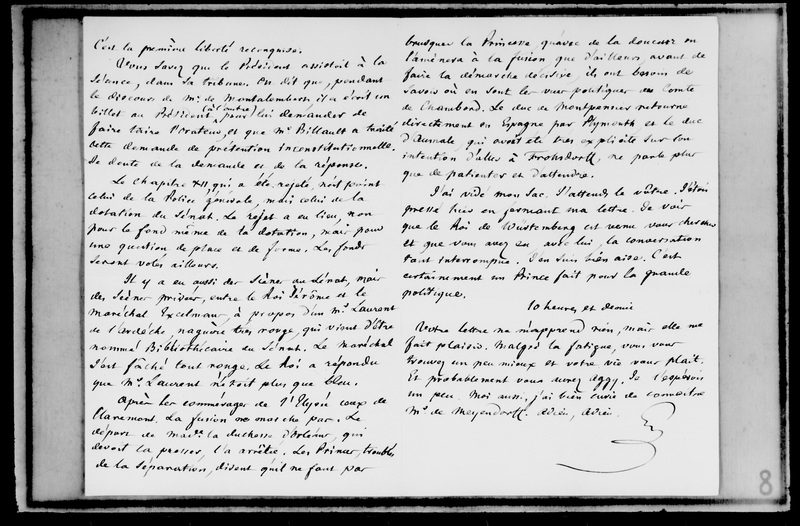 C'est la première liberté reconquise.
Vous savez que le Président assistoit à la
séance, dans sa tribune. On dit que, pendant
le discours de Mr. de Montalembert, il a écrit un
billet au Président (à Coutre) pour lui demander de
faire taire l'orateur, et que Mr. Billault a traité
cette demande de prétention inconstitutionnelle.
Je doute de la demande et de la réponse.
Le chapitre XII, qui a été rejeté, n'est point
celui de la Police générale, mais celui de la
dotation du Sénat. Le rejet a eu lieu, non
pour le fond même de la dotation, mais pour
une question de place et de forme. Les fonds
seront votés ailleurs.
Il y a eu aussi des scènes au Sénat, mais
des scènes privées, entre le Roi Jérôme et le
maréchal Excelmans, à propos d'un Mr. Laurent
de l'Ardèche, naguère très rouge, qui vient d'être
nommé Bibliothécaire du Sénat. Le maréchal
s'est fâché tout rouge. Le Roi a répondu
que Mr. Laurent n'étoit plus que bleu.
Après les commérages de l'Elysée ceux de
Claremont. La fusion ne marche pas. Le
départ de made. la duchesse d'Orléans, qui
devoit la presser, l'a arrêtée. Les Princes, troublés
de la séparation, disent qu'il ne faut pas
brusquer la Princesse, qu'avec de la douceur on
l'amènera à la fusion que d'ailleurs, avant de
faire la démarche décisive, ils ont besoin de
savoir où en sont les vues politiques du Comte
de Chambord. Le duc de Montpensier retourne
directement en Espagne par Plymouth et le duc
d'Aumale qui avoit été très explicite sur son
intention d'aller à Frohsdorff, ne parle plus
que de patienter et d'attendre.
J'ai vidé mon sac. J'attends le vôtre. J'étois
pressé hier en fermant ma lettre. Je vois
que le Roi de Würtemberg est venu vous chercher
et que vous avez eu, avec lui, la conversation
tant interrompue. J'en suis bien aise. C'est
certainement un Prince fait pour la grande
politique.
10 heures et demie
Votre lettre ne m'apprend rien, mais elle me
fait plaisir. Malgré la fatigue, vous vous
trouvez un peu mieux et votre vie vous plaît.
Et probablement vous aurez Aggy. Je l'espérois
un peu. Moi aussi, j'ai bien envie de connoître
Mr. de Meyendorff. Adieu, Adieu.
8